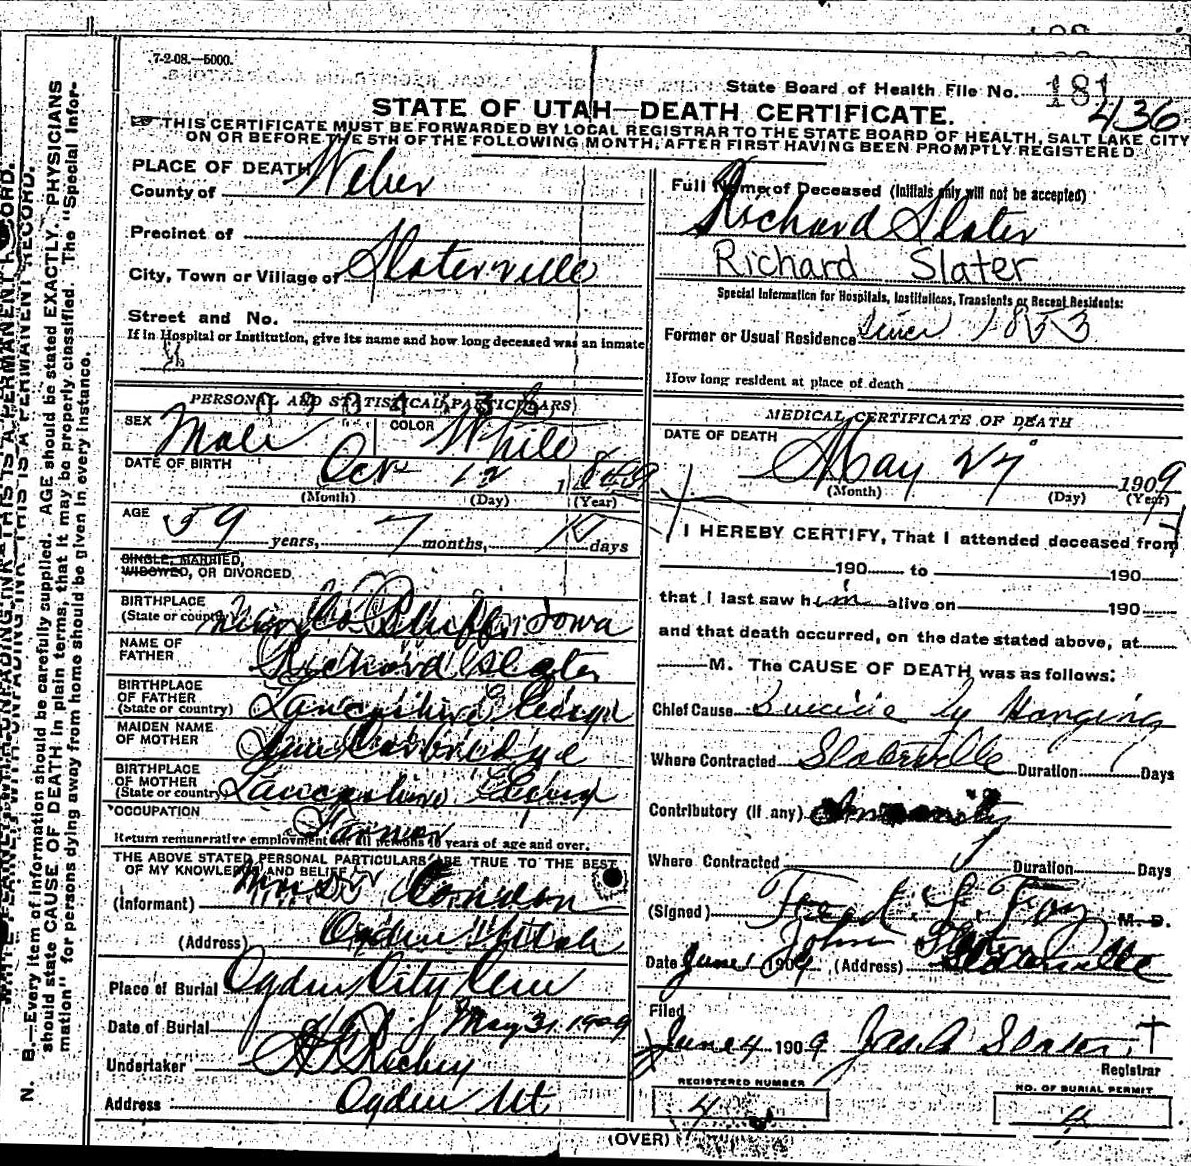 7-2-08.—5000.
State Board of Health File No. 181
436
STATE OF UTAH—DEATH CERTIFICATE.
THIS CERTIFICATE MUST BE FORWARDED BY LOCAL REGISTRAR TO THE STATE BOARD OF HEALTH, SALT LAKE CITY
ON OR BEFORE THE 5TH OF THE FOLLOWING MONTH, AFTER FIRST HAVING BEEN PROMPTLY REGISTERED
PLACE OF DEATH
County of Weber
Precinct of
City, Town or Village of Slaterville
Street and No.
If in Hospital or Institution, give its name and how long deceased was an inmate
PERSONAL AND STATISTICAL PARTICULARS
SEX Male COLOR White
DATE OF BIRTH Oct 12
(Month) (Day) (Year)
AGE 59 years, 7 months, days
SINGLE, MARRIED,
WIDOWED, OR DIVORCED
BIRTHPLACE
(State or country) Bluffs Iowa
NAME OF
FATHER Richard Slater
BIRTHPLACE
OF FATHER
(State or country) Lancashire
MAIDEN NAME
OF MOTHER Ann Corbridge
BIRTHPLACE
OF MOTHER
(State or country) Lancashire
OCCUPATION Farmer
Return remunerative employment for all persons 10 years of age and over.
THE ABOVE STATED PERSONAL PARTICULARS ARE TRUE TO THE BEST
OF MY KNOWLEDGE AND BELIEF
(Informant)
(Address) Ogden Utah
Place of Burial Ogden City Cem
Date of Burial May 31, 1909
Undertaker Richey
Address Ogden Ut.
Full Name of Deceased (Initials only will not be accepted)
Richard Slater
Richard Slater
Special Information for Hospitals, Institutions, Transients or Recent Residents:
Former or Usual Residence since 1853
How long resident at place of death
MEDICAL CERTIFICATE OF DEATH
DATE OF DEATH
May 27 1909
(Month) (Day) (Year)
I HEREBY CERTIFY, That I attended deceased from
190 to 190
that I last saw him alive on 190
and that death occurred, on the date stated above, at
M. The CAUSE OF DEATH was as follows:
Chief Cause Suicide by Hanging
Where Contracted Slaterville Duration Days
Contributory (if any)
Where Contracted Duration Days
(Signed) Fred J. Foy M. D.
John Slater
Date June 1 1909 (Address) Slaterville
Filed
June 4 1909 Jas A Slater
Registrar
REGISTERED NUMBER
4
NO. OF BURIAL PERMIT
4
(OVER)
N. B.—Every item of information should be carefully supplied. AGE should be stated EXACTLY. PHYSICIANS
should state CAUSE OF DEATH in plain terms, that it may be properly classified. The "Special Infor-
mation" for persons dying away from home should be given in every instance.
WRITE PLAINLY, WITH UNFADING INK—THIS IS A PERMANENT RECORD.